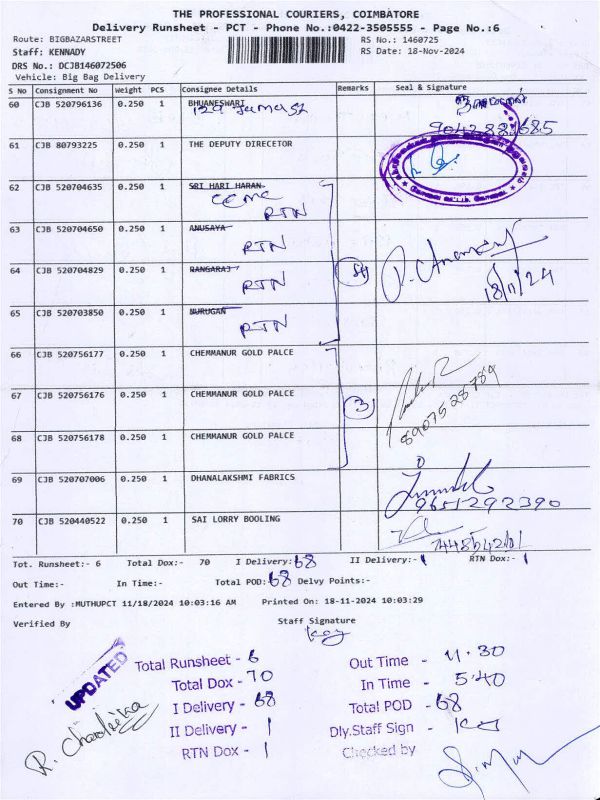 THE PROFESSIONAL COURIERS, COIMBATORE
Delivery Runsheet - PCT - Phone No.:0422-3505555 - Page No.:6
Route: BIGBAZARSTREET RS No.: 1460725
Staff: KENNADY RS Date: 18-Nov-2024
DRS No.: DCJB146072506
Vehicle: Big Bag Delivery
S No Consignment No Weight PCS Consignee Details Remarks Seal & Signature
60 CJB 520796136 0.250 1 BHUANESWARI
129
61 CJB 80793225 0.250 1 THE DEPUTY DIRECETOR
62 CJB 520704635 0.250 1 SRI HARI HARAN
RTN
63 CJB 520704650 0.250 1 ANUSAYA
RTN
64 CJB 520704829 0.250 1 RANGARAJ
RTN
18/11/24
65 CJB 520703850 0.250 1 MURUGAN
RTN
66 CJB 520756177 0.250 1 CHEMMANUR GOLD PALCE
67 CJB 520756176 0.250 1 CHEMMANUR GOLD PALCE 3
8907528789
68 CJB 520756178 0.250 1 CHEMMANUR GOLD PALCE
69 CJB 520707006 1 DHANALAKSHMI FABRICS
0.250
9651292390
70 CJB 520440522 0.250 1 SAI LORRY BOOLING
Tot. Runsheet:- 6 Total Dox:- 70 I Delivery:68 II Delivery:-1 RTN Dox:-1
Out Time:- In Time:- Total POD:68 Delvy Points:-
Entered By :MUTHUPCT 11/18/2024 10:03:16 AM Printed On: 18-11-2024 10:03:29
Verified By Staff Signature
UPDATED
Total Runsheet - 6 Out Time - 11.30
Total Dox - 70 In Time - 5.40
I Delivery - 68 Total POD - 68
II Delivery - 1 Dly.Staff Sign -
RTN Dox - 1 Checked by